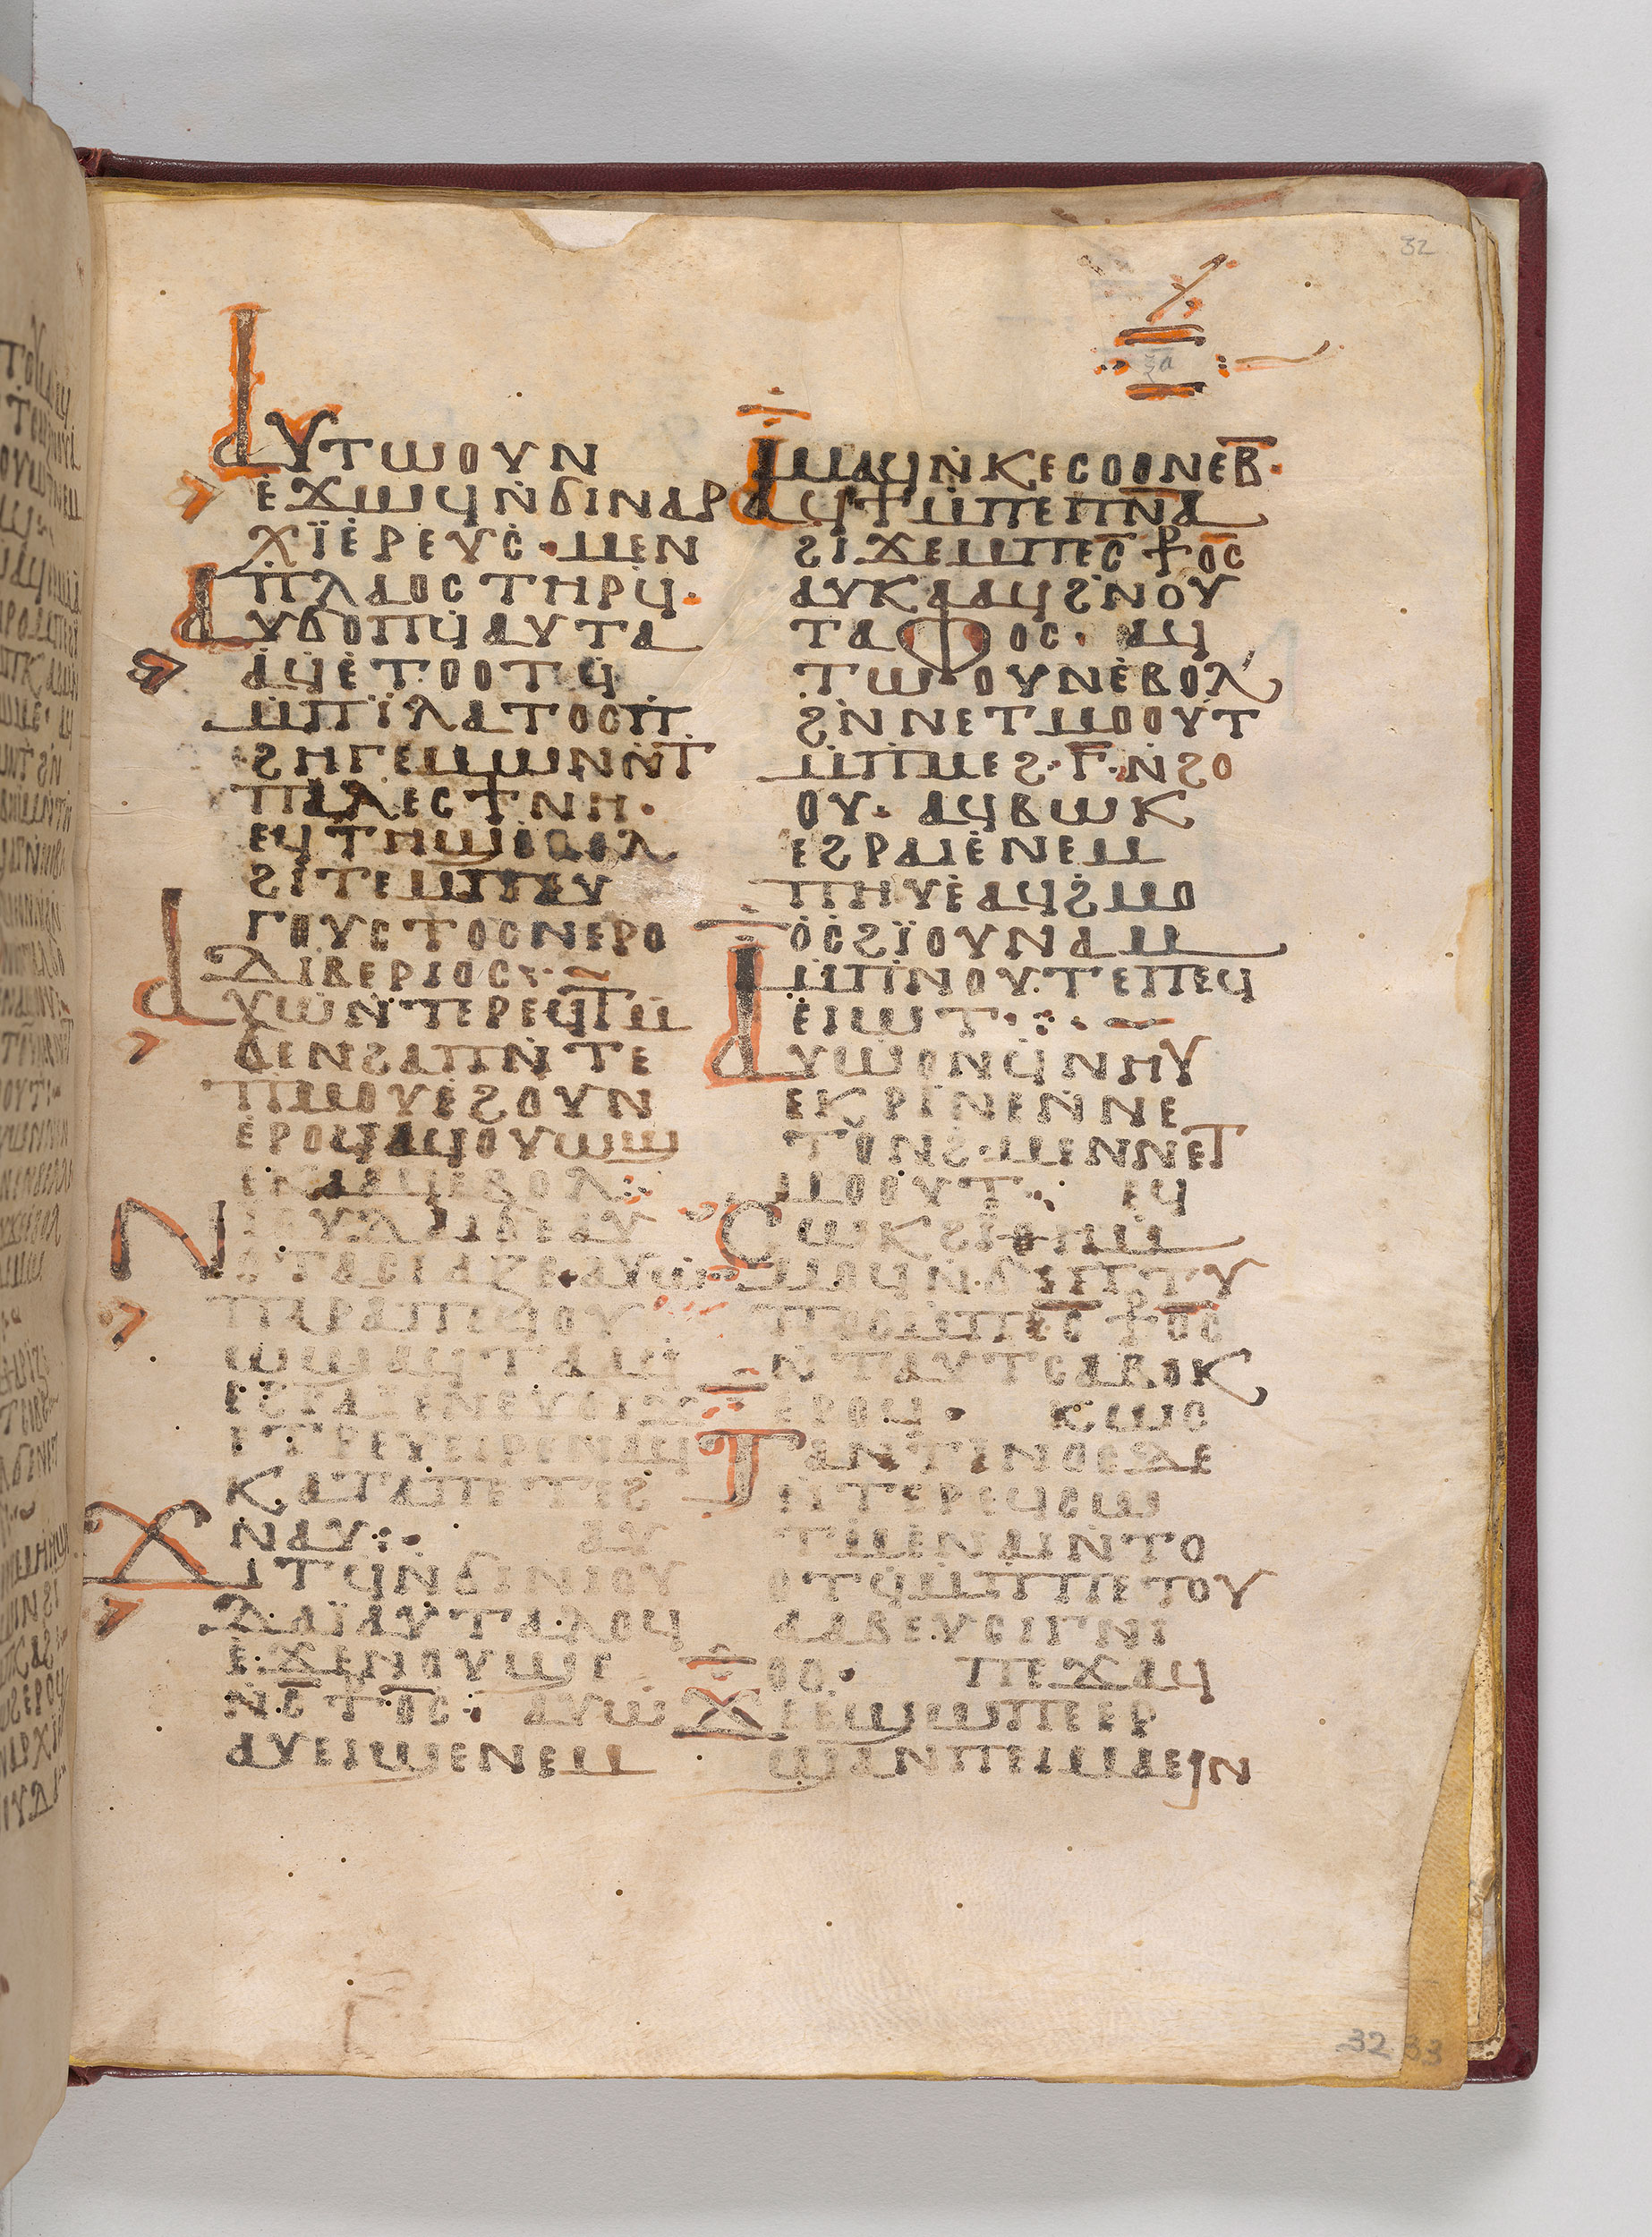 32
ⲝⲁ
ⲁⲩⲧⲱⲟⲩⲛ
ⲉϫⲱϥⲛ̇ϭⲓⲛⲁⲣ
ⲭⲓ̈ⲉⲣⲉⲩⲥ·ⲙⲉⲛ
ⲡ̇ⲗⲁⲟⲥⲧⲏⲣϥ·
ⲁⲩϭⲟⲡϥⲁⲩⲧⲁ
ⲁϥⲉ̇ⲧⲟⲟⲧϥ̇
ⲙ̇ⲡⲓ̈ⲗⲁⲧⲟⲥⲡ̇
ϩⲏⲅⲉⲙⲱⲛⲛ̇ⲧ
ⲡⲁⲗⲉⲥⲧⲛⲏ·
ⲉϥⲧⲏϣⲉⲃⲟⲗ
ϩⲓⲧⲉⲙⲡⲁⲩ
ⲅⲟⲩⲥⲧⲟⲥⲛⲉⲣⲟ
ⲇⲓⲃⲉⲣⲓⲟⲥ·
ⲁⲩⲱⲛ̇ⲧⲉⲣⲉϥϯⲙ̇
ϭⲉⲛϩⲁⲡⲛ̇ⲧⲉ
ⲡⲙⲟⲩⲉ̇ϩⲟⲩⲛ
ⲉ̇ⲣⲟϥⲁϥⲟⲩⲱϣ
ⲉⲕⲁⲁϥⲉⲃⲟⲗ
ⲛⲓⲟⲩⲇⲁⲓⲇⲉⲁⲩ
ⲥⲧⲁⲥⲓⲁⲍⲉ·ⲁⲩⲱ
ⲡⲁⲣⲁⲡⲉϥⲟⲩ
ⲱϣⲁϥⲧⲁⲁϥ
ⲉϩⲣⲁⲓ̈ⲉⲛⲉⲩϭⲓϫ
ⲉⲧⲣⲉⲩⲉⲓⲣⲉⲛⲁϥ
ⲕⲁⲧⲁⲡⲉⲧⲉϩ
ⲛⲁⲩ ⲁⲩ
ϫⲓⲧϥⲛ̇ϭⲓⲛⲓⲟⲩ
ⲇⲁⲓ̈ⲁⲩⲧⲁⲗⲟϥ
ⲉ̇ϫⲉⲛⲟⲩϣⲉ
ⲛ̇ⲥⲧⲟⲥ ⲁⲩⲱ
ⲁⲩⲉⲓϣⲉⲛⲉⲙ
ⲙⲁϥⲛ̇ⲕⲉⲥⲟⲟⲛⲉⲃ̅·
ⲁϥϯⲙⲡⲉⲡⲛ̅ⲁ̅
ϩⲓϫⲉⲙⲡⲉⲥ⳨ⲟⲥ
ⲁⲩⲕⲁⲁϥϩⲛ̇ⲟⲩ
ⲧⲁⲫⲟⲥ· ⲁϥ
ⲧⲱⲟⲩⲛⲉ̇ⲃⲟⲗ
ϩⲛ̇ⲛⲉⲧⲙⲟⲟⲩⲧ
ⲙ̇ⲡⲙⲉϩ·ⲅ̅·ⲛ̇ϩⲟ
ⲟⲩ· ⲁϥⲃⲱⲕ
ⲉϩⲣⲁⲓⲉ̇ⲛⲉⲙ
ⲡⲏⲩⲉ̇ⲁϥϩ̇ⲙⲟ
ⲟ̇ⲥ̇ϩⲓ̈ⲟⲩⲛⲁⲙ
ⲙ̇ⲡⲛⲟⲩⲧⲉⲡⲉϥ
ⲉⲓⲱⲧ·
ⲁⲩⲱⲟⲛϥ̇ⲛⲏⲩ
ⲉⲕⲣⲓⲛⲉⲛ̇ⲛⲉ
ⲧⲟⲛϩ·ⲙⲉⲛⲛⲉⲧ
ⲙⲟⲟⲩⲧ ⲉϥ
ⲥⲱⲕϩⲓⲑⲏⲙ
ⲙⲟϥⲛ̇ϭⲓⲡⲧⲩ
ⲡⲟⲥⲙ̇ⲡⲉⲥ⳨ⲟⲥ
ⲛ̇ⲧⲁⲩⲧⲥⲁⲃⲟⲕ
ⲉⲣⲟϥ· ⲕⲱⲥ
ⲧⲁⲛⲧⲓⲛⲟⲥⲇⲉ
ⲛ̇ⲧⲉⲣⲉϥⲥⲱ
ⲧⲙⲉⲛⲁⲓⲛ̇ⲧⲟ
ⲟⲧϥⲙ̇ⲡⲡⲉⲧⲟⲩ
ⲁⲁⲃⲉⲩⲥⲓⲅⲛⲓ
ⲟⲥ· ⲡⲉϫⲁϥ
ϫⲉⲉϣⲱⲡⲉⲉⲣ
ϣⲁⲛⲡⲉⲓⲙⲁⲉⲓⲛ
32 33